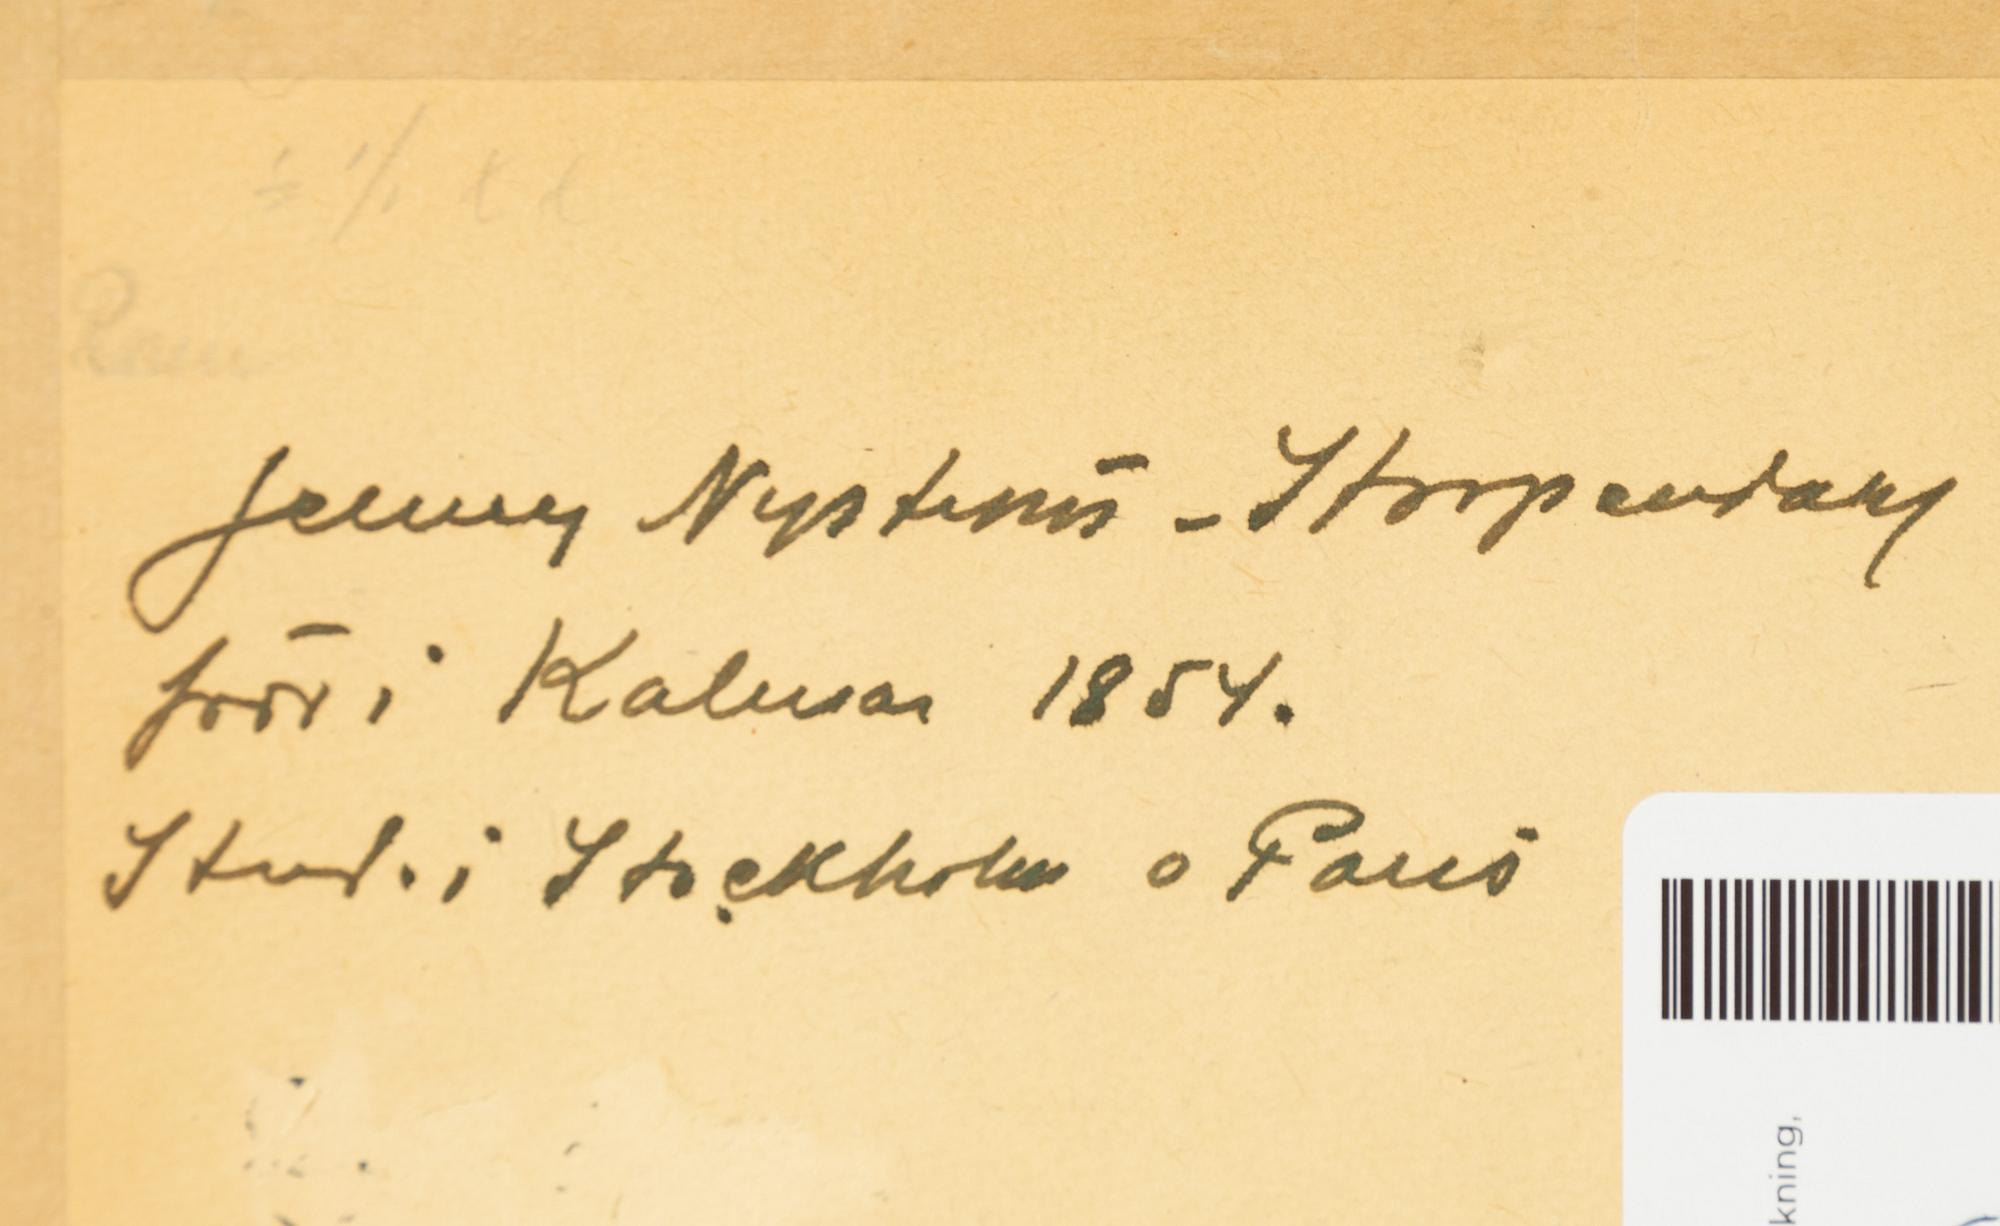 Jenny Nyström - Stoopendaal
född i Kalmar 1854.
Stud. i Stockholm o Paris
kning,